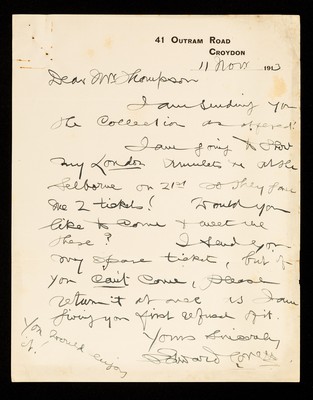 41 OUTRAM ROAD
CROYDON
11 Nov 191
Dear Mrs Thompson
I am sending you
the Collection as offered!
I am going to show
my London Amulets at the
Selborne on 21st so they gave
me 2 tickets! Would you
like to come & meet me
there? I send you
my spare ticket, but if
you can't come, please
return it at once as I am
giving you first refusal of it.
Yours Sincerely
Edward Lovett
You would enjoy
it!